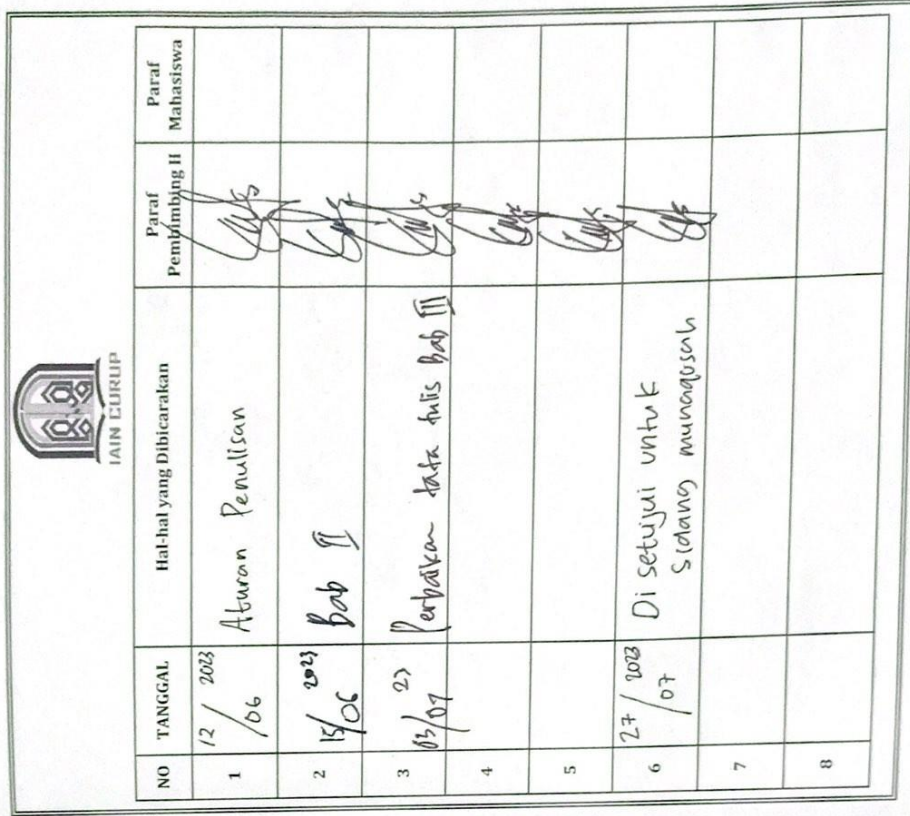 IAIN CURUP
NO TANGGAL Hal-hal yang Dibicarakan Paraf Pembimbing II Paraf Mahasiswa
1 12/06 2023 Aturan Penulisan
2 15/06 2023 Bab II
3 03/07 23 Perbaikan tata tulis Bab III
4
5
6 27/07 2023 Di setujui untuk
Sidang munaqosah
7
8